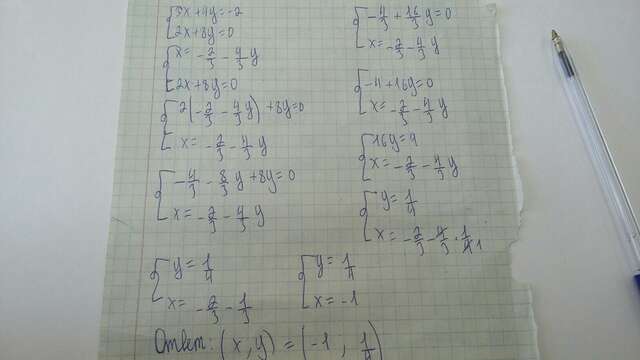 3x+4y=-2
2x+8y=0
x=-2/3-4/3 y
2x+8y=0
2(-2/3-4/3 y)+8y=0
x=-2/3-4/3 y
-4/3-8/3 y+8y=0
x=-2/3-4/3 y
-4/3+16/3 y=0
x=-2/3-4/3 y
-4+16y=0
x=-2/3-4/3 y
16y=4
x=-2/3-4/3 y
y=1/4
x=-2/3-4/3·1/4 1
y=1/4
x=-2/3-1/3
y=1/4
x=-1
Ответ: (x,y)=(-1; 1/4)